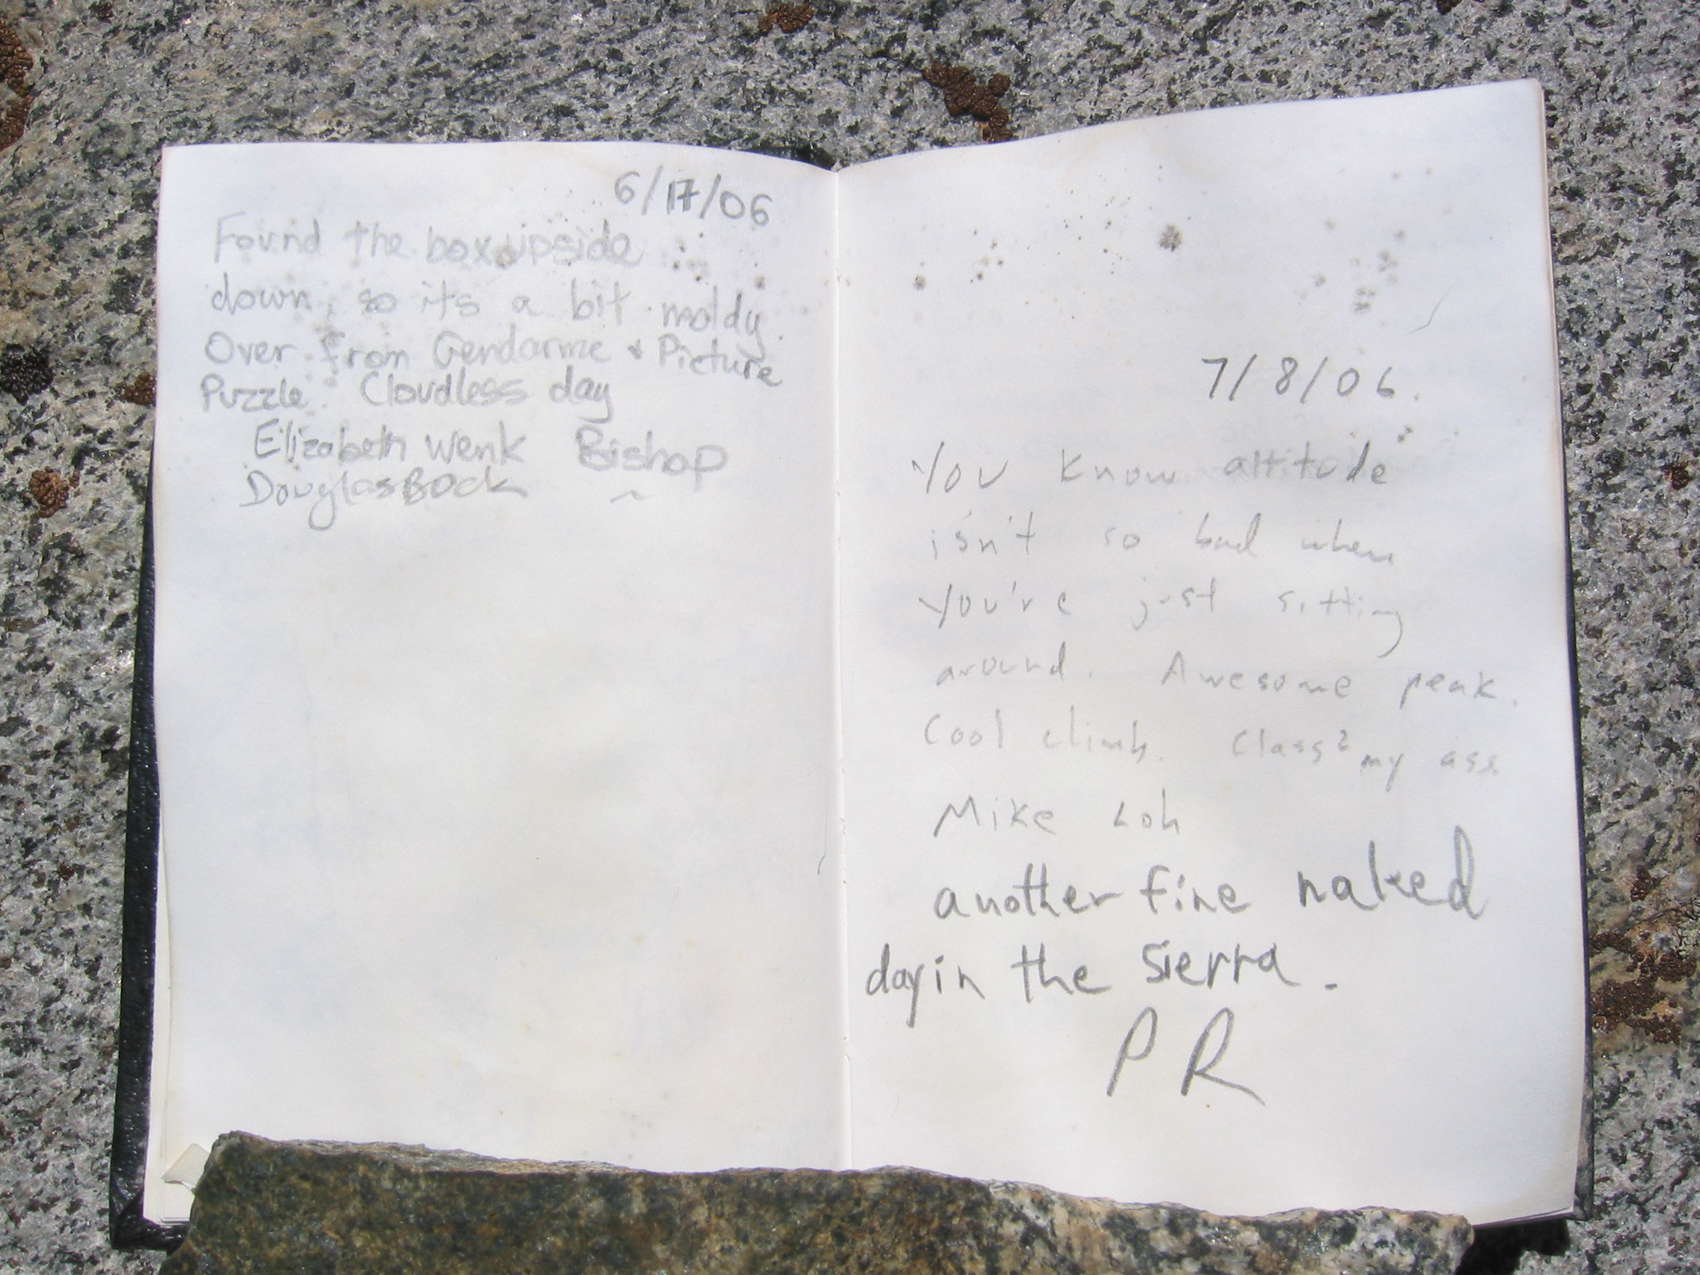 6/17/06
Found the box upside
down, so it's a bit moldy.
Over from Gendarme + Picture
Puzzle. Cloudless day
Elizabeth Wenk Bishop
Douglas Bock ~
7/8/06.
You know altitude
isn't so bad when
you're just sitting
around. Awesome peak.
Cool climb. Class 2 my ass
Mike Loh
another fine naked
day in the Sierra.
PR